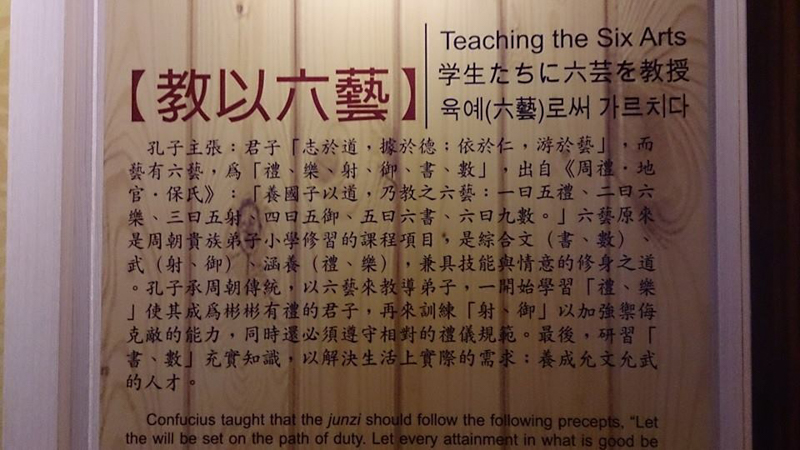 【教以六藝】
Teaching the Six Arts
学生たちに六芸を教授
육예(六藝)로써 가르치다
孔子主張：君子「志於道，據於德；依於仁，游於藝」，而
藝有六藝，爲「禮、樂、射、御、書、數」，出自《周禮．地
官．保氏》：「養國子以道，乃教之六藝：一曰五禮、二曰六
樂、三曰五射、四曰五御、五曰六書、六曰九數。」六藝原來
是周朝貴族弟子小學修習的課程項目，是綜合文（書、數）、
武（射、御）、涵養（禮、樂），兼具技能與情意的修身之道
。孔子承周朝傳統，以六藝來教導弟子，一開始學習「禮、樂
」使其成爲彬彬有禮的君子，再來訓練「射、御」以加強禦侮
克敵的能力，同時還必須遵守相對的禮儀規範。最後，研習「
書、數」充實知識，以解決生活上實際的需求；養成允文允武
的人才。
Confucius taught that the junzi should follow the following precepts, "Let
the will be set on the path of duty. Let every attainment in what is good be